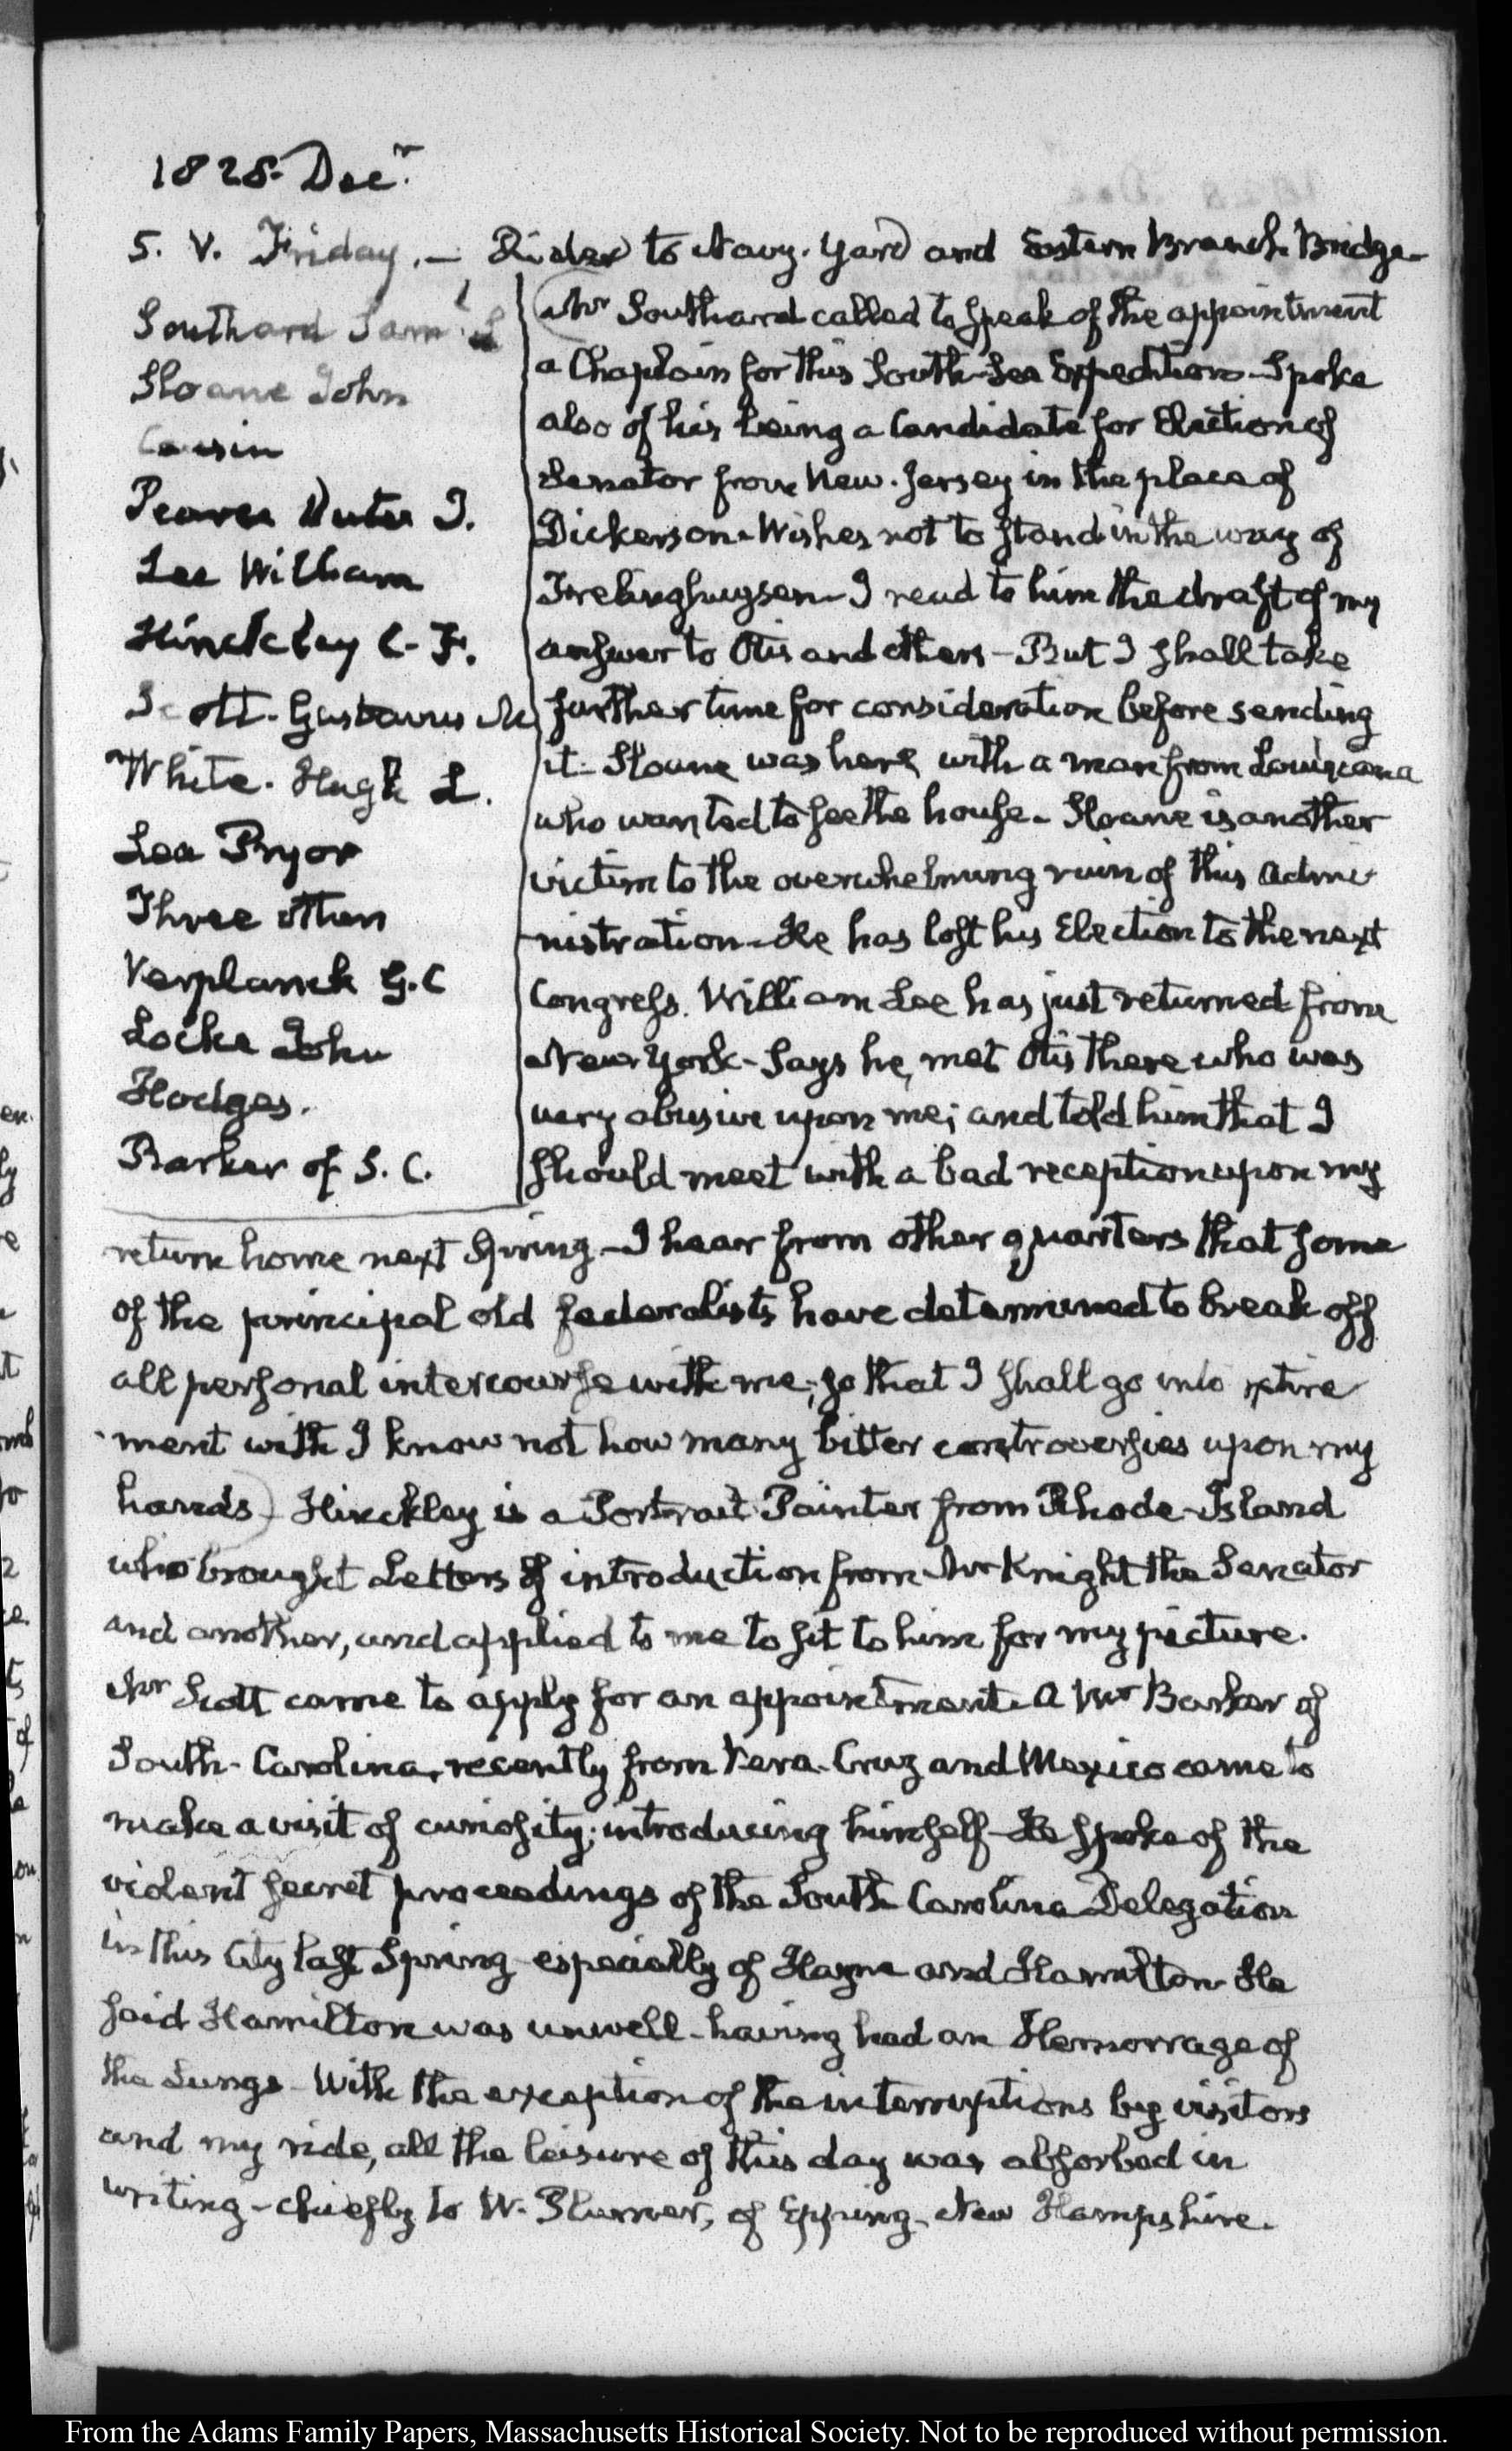 1828. Decr.
5. V. Friday. — Rider to Navy. Yard and Eastern Branch Bridge.
Southard Saml. L
Sloane John
Cousin
Pearce Dutee J.
Lee William
Hinckley C. F.
Scott. Gustavus M
White. Hugh L.
Lea Pryor
Three others
Verplanck G. C
Locke John
Hodges.
Barker of S. C.
Mr Southard called to speak of the appointment
a Chaplain for this South-Sea Expedition. Spoke
also of his being a Candidate for Election of
Senator from New. Jersey in the place of
Dickerson. Wishes not to stand in the way of
Frelinghuysen — I read to him the draft of my
answer to Otis and others — But I shall take
further time for consideration before sending
it. Sloane was here with a man from Louisiana
who wanted to see the house. Sloane is another
victim to the overwhelming ruin of this Admi-
nistration. He has lost his Election to the next
Congress. William Lee has just returned from
New York - Says he met Otis there who was
very abusive upon me; and told him that I
should meet with a bad reception upon my
return home next Spring — I hear from other quarters that some
of the principal old federalists have determined to break off
all personal intercourse with me; so that I shall go into retire
ment with I know not how many bitter controversies upon my
hands) Hinckley is a Portrait Painter from Rhode-Island
who brought Letters of introduction from Mr Knight the Senator
and another, and applied to me to sit to him for my picture.
Mr Scott came to apply for an appointment. A Mr Barker of
South-Carolina, recently from Vera-Cruz and Mexico came to
make a visit of curiosity; introducing himself — He spoke of the
violent secret proceedings of the South Carolina Delegation
in this City last Spring especially of Hayne and Hamilton. He
said Hamilton was unwell - having had an Hemorrage of
the Lungs — With the exception of the interruptions by visitors
and my ride, all the leisure of this day was absorbed in
writing - chiefly to W. Plumer, of Epping, New Hampshire.
From the Adams Family Papers, Massachusetts Historical Society. Not to be reproduced without permission.